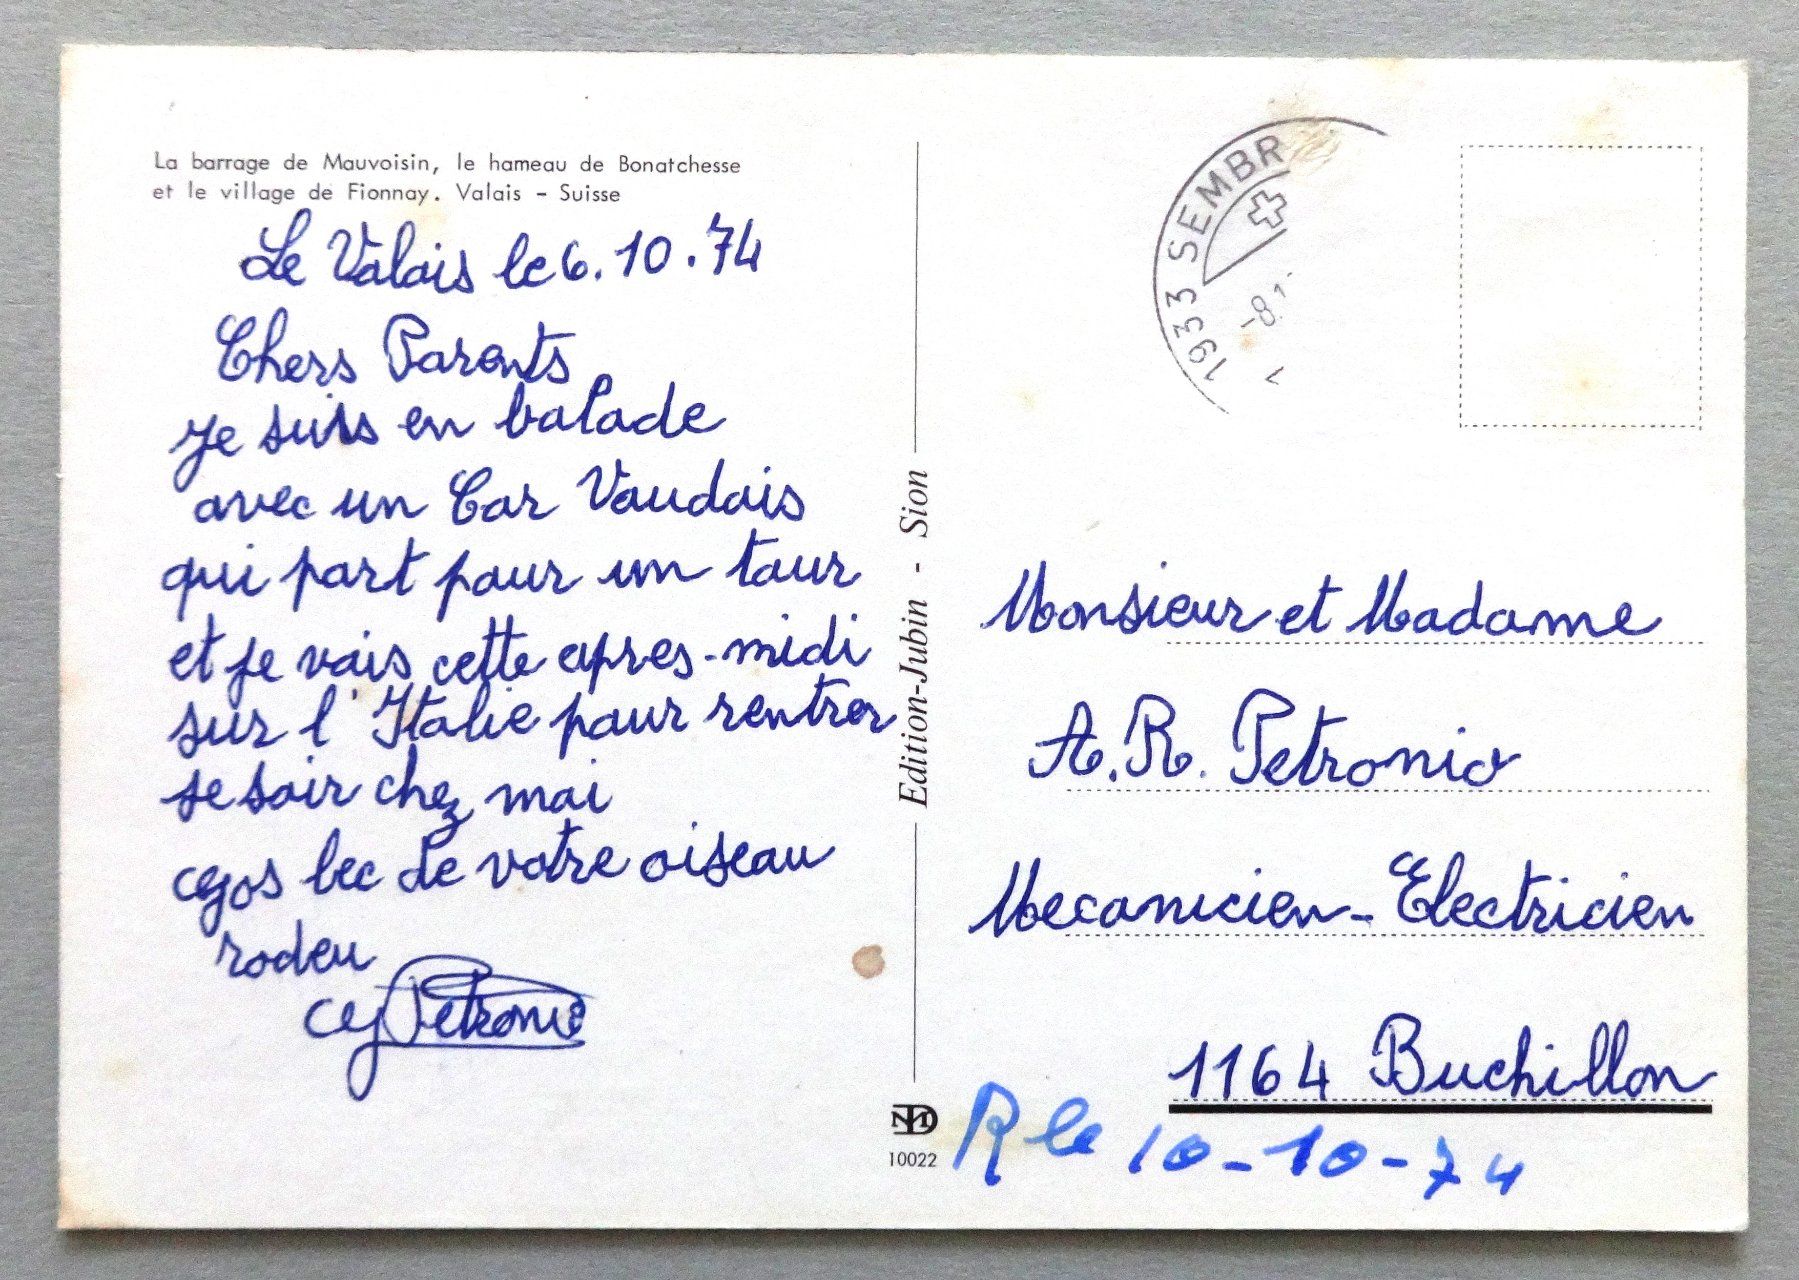 La barrage de Mauvoisin, le hameau de Bonatchesse
et le village de Fionnay. Valais – Suisse
Le Valais le 6.10.74
Chers Parents
je suis en balade
avec un Car Vaudois
qui part pour un tour
et je vais cette apres-midi
sur l'Italie pour rentrer
se soir chez moi
gos bec de votre oiseau
rodeu
Petronio
Edition-Jubin - Sion
MD
10022
1933 SEMBR
-8.1
1
Monsieur et Madame
A.R. Petronio
Mecanicien-Electricien
1164 Buchillon
R le 10-10-74